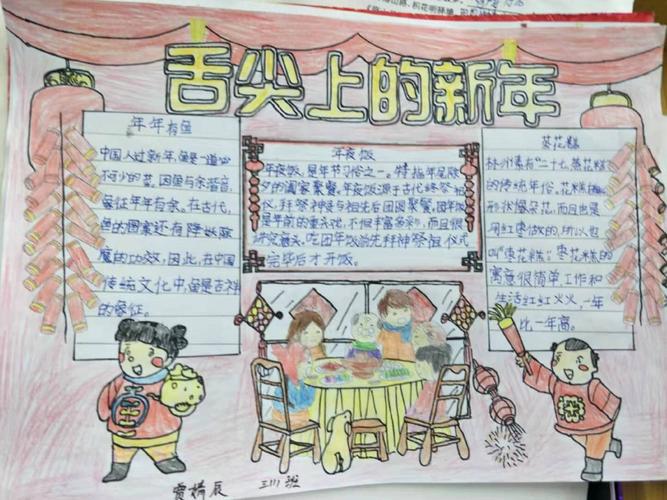 舌尖上的新年
年年有鱼
中国人过新年,鱼是一道必
不可少的菜,因鱼与余谐音,
象征年年有余。在古代,
鱼的图案还有降妖除
魔的功效,因此,在中国
传统文化中,鱼是吉祥
的象征。
年夜饭
年夜饭,是年节习俗之一。特指年尾除
夕的阖家聚餐。年夜饭源于古代终祭祖
仪,拜祭神灵与祖先后团圆聚餐。团年饭
是年前的重头戏,不但丰富多彩,而且很
讲究意头。吃团年饭前先拜神祭祖,仪式
完毕后才开饭。
葵花糕
林州素有"二十七,蒸花糕"
的传统年俗,花米糕
形状像葵花,而且也是
用红枣做的,所以也
叫"枣花糕"。枣花糕的
寓意很简单,工作和
生活红红火火,一年
比一年高。
贾婧辰 三川班